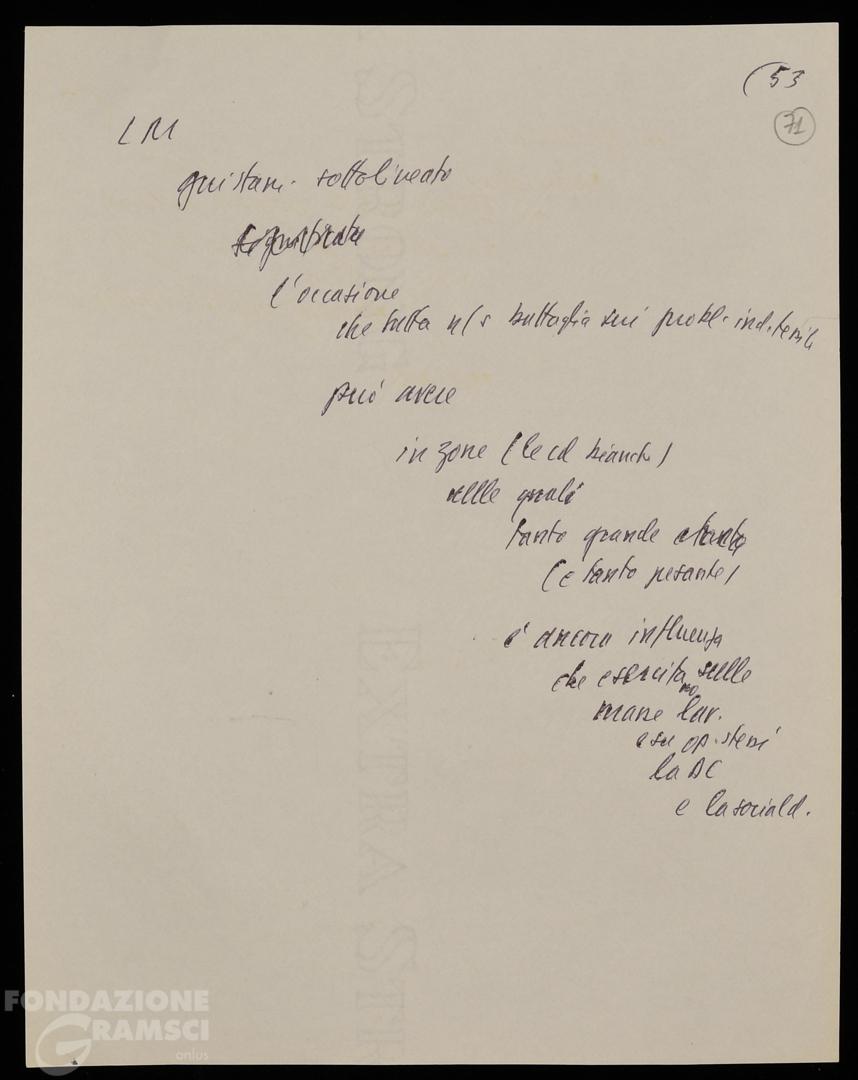 (53
71
LM
giustam. sottolineato
l'occasione
che tutta n/s battaglia sui probl. ind.
può avere
in zone (le cd bianche)
nelle quali
tanto grande
(e tanto pesante)
è ancora influenza
che esercitano sulle
masse lav.
e su op. stessi
la DC
e la sociald.
FONDAZIONE
GRAMSCI
onlus
EXTRA ST